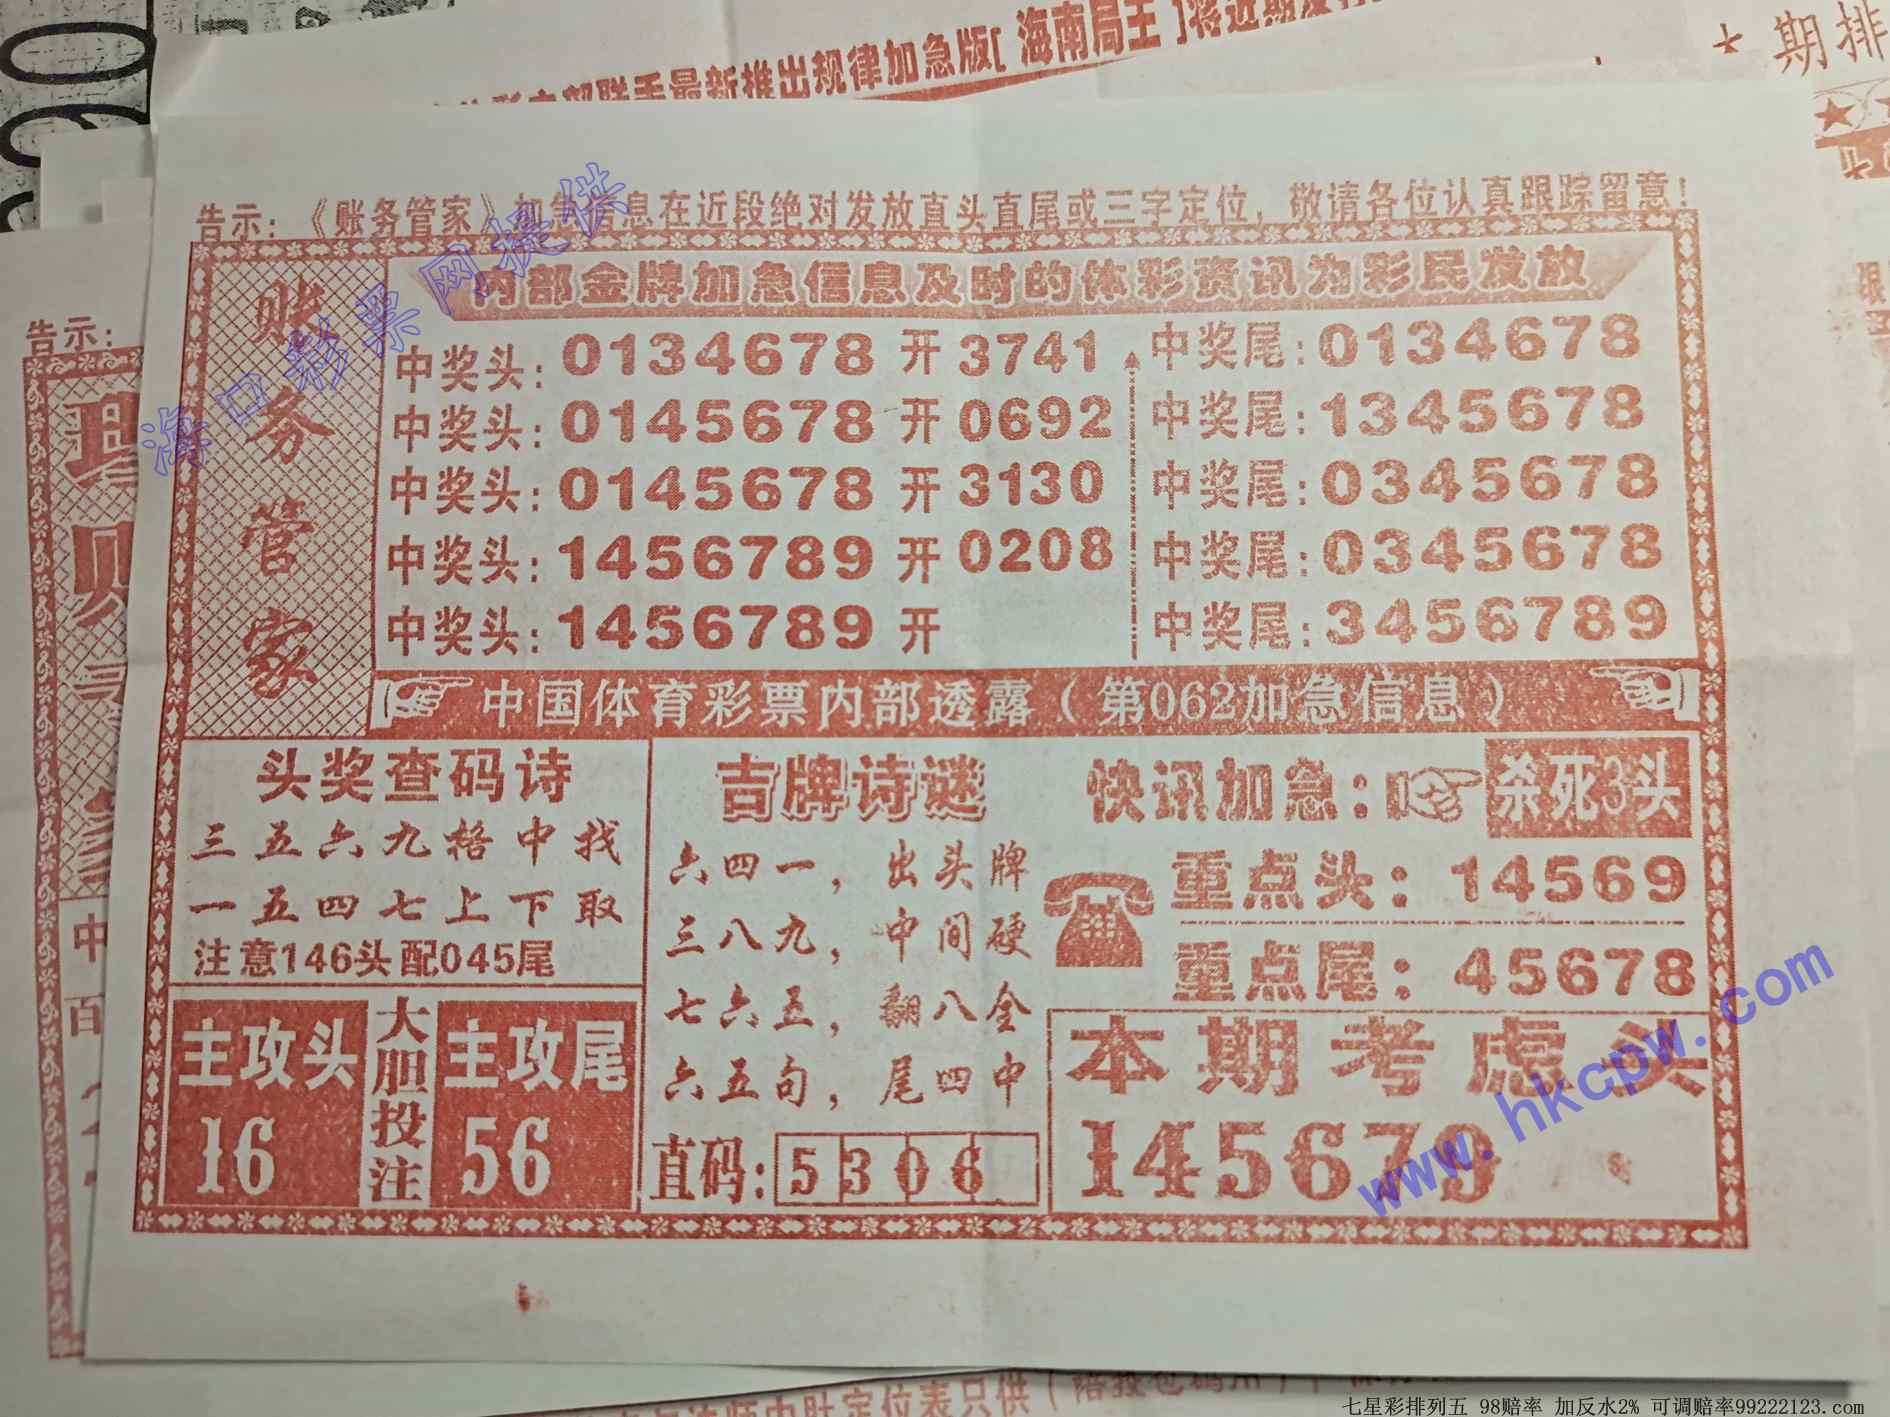 最新推出规律加急版[ 海南局王 ]将近期
* 期排
告示：《账务管家》加急信息在近段绝对发放直头直尾或三字定位，敬请各位认真跟踪留意！
账务管家
内部金牌加急信息及时的体彩资讯为彩民发放
中奖头：0134678 开 3741 中奖尾：0134678
中奖头：0145678 开 0692 中奖尾：1345678
中奖头：0145678 开 3130 中奖尾：0345678
中奖头：1456789 开 0208 中奖尾：0345678
中奖头：1456789 开 中奖尾：3456789
中国体育彩票内部透露（第062加急信息）
头奖查码诗
三五六九格中找
一五四七上下取
注意146头配045尾
主攻头
16
大胆投注
主攻尾
56
吉牌诗谜
六四一，出头牌
三八九，中间硬
七六五，翻八全
六五句，尾四中
直码：5306
快讯加急：杀死3头
重点头：14569
重点尾：45678
本期考虑头
145679
告示：
定位表只供
海口彩票网提供
www.hkcpw.com
七星彩排列五 98赔率 加反水2% 可调赔率99222123.com